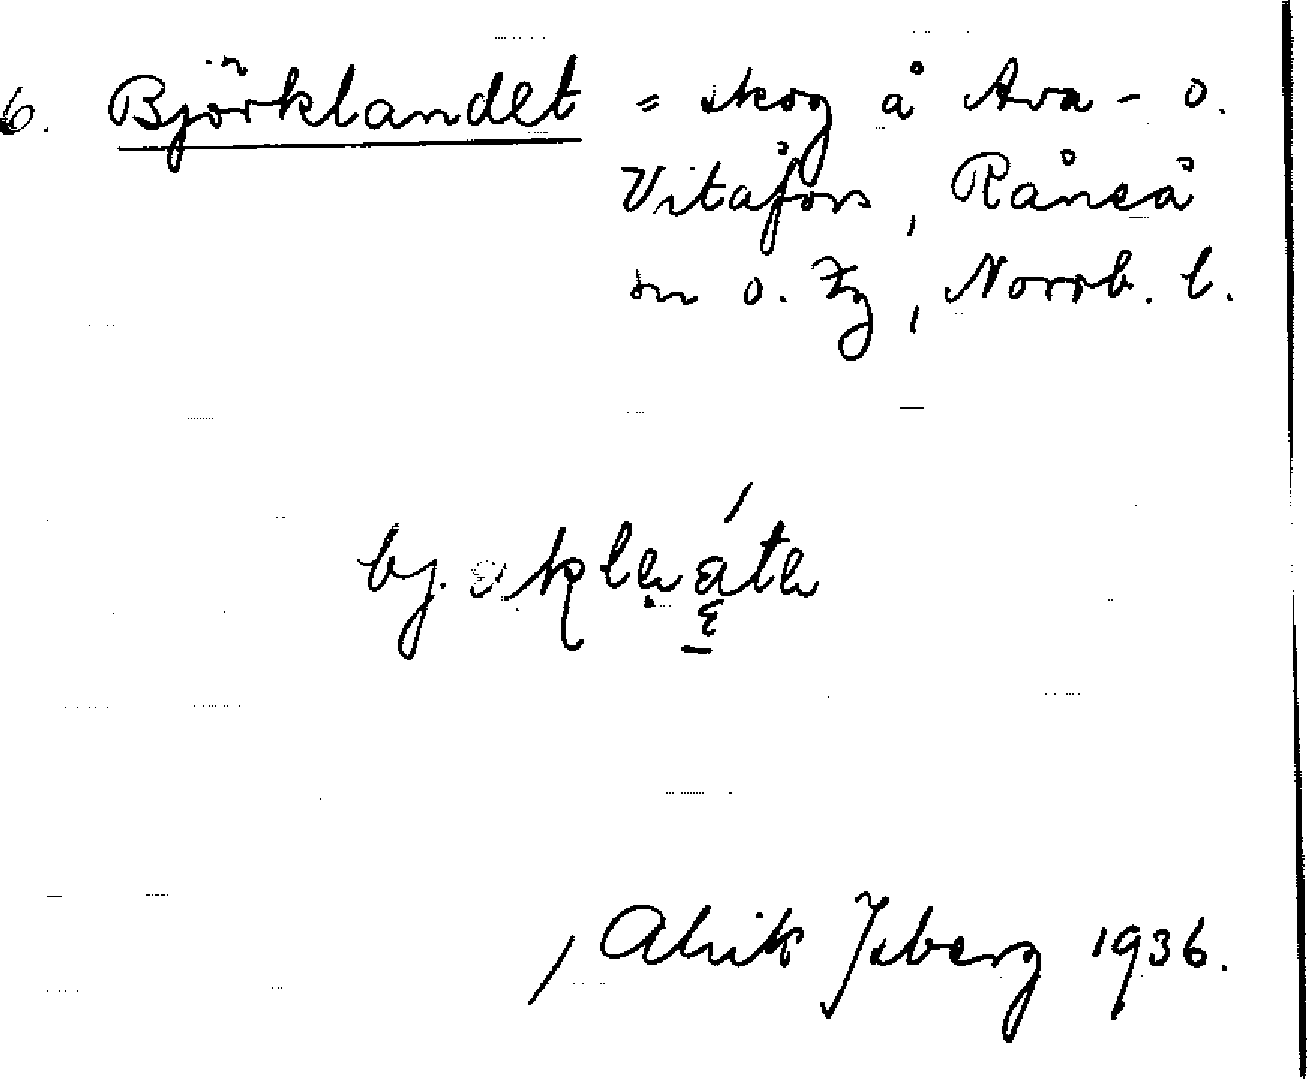 6. Björklandet = skog å Ava- o.
Vitåfors, Råneå
sn o. tg, Norrb. l.
Alrik Isberg 1936.